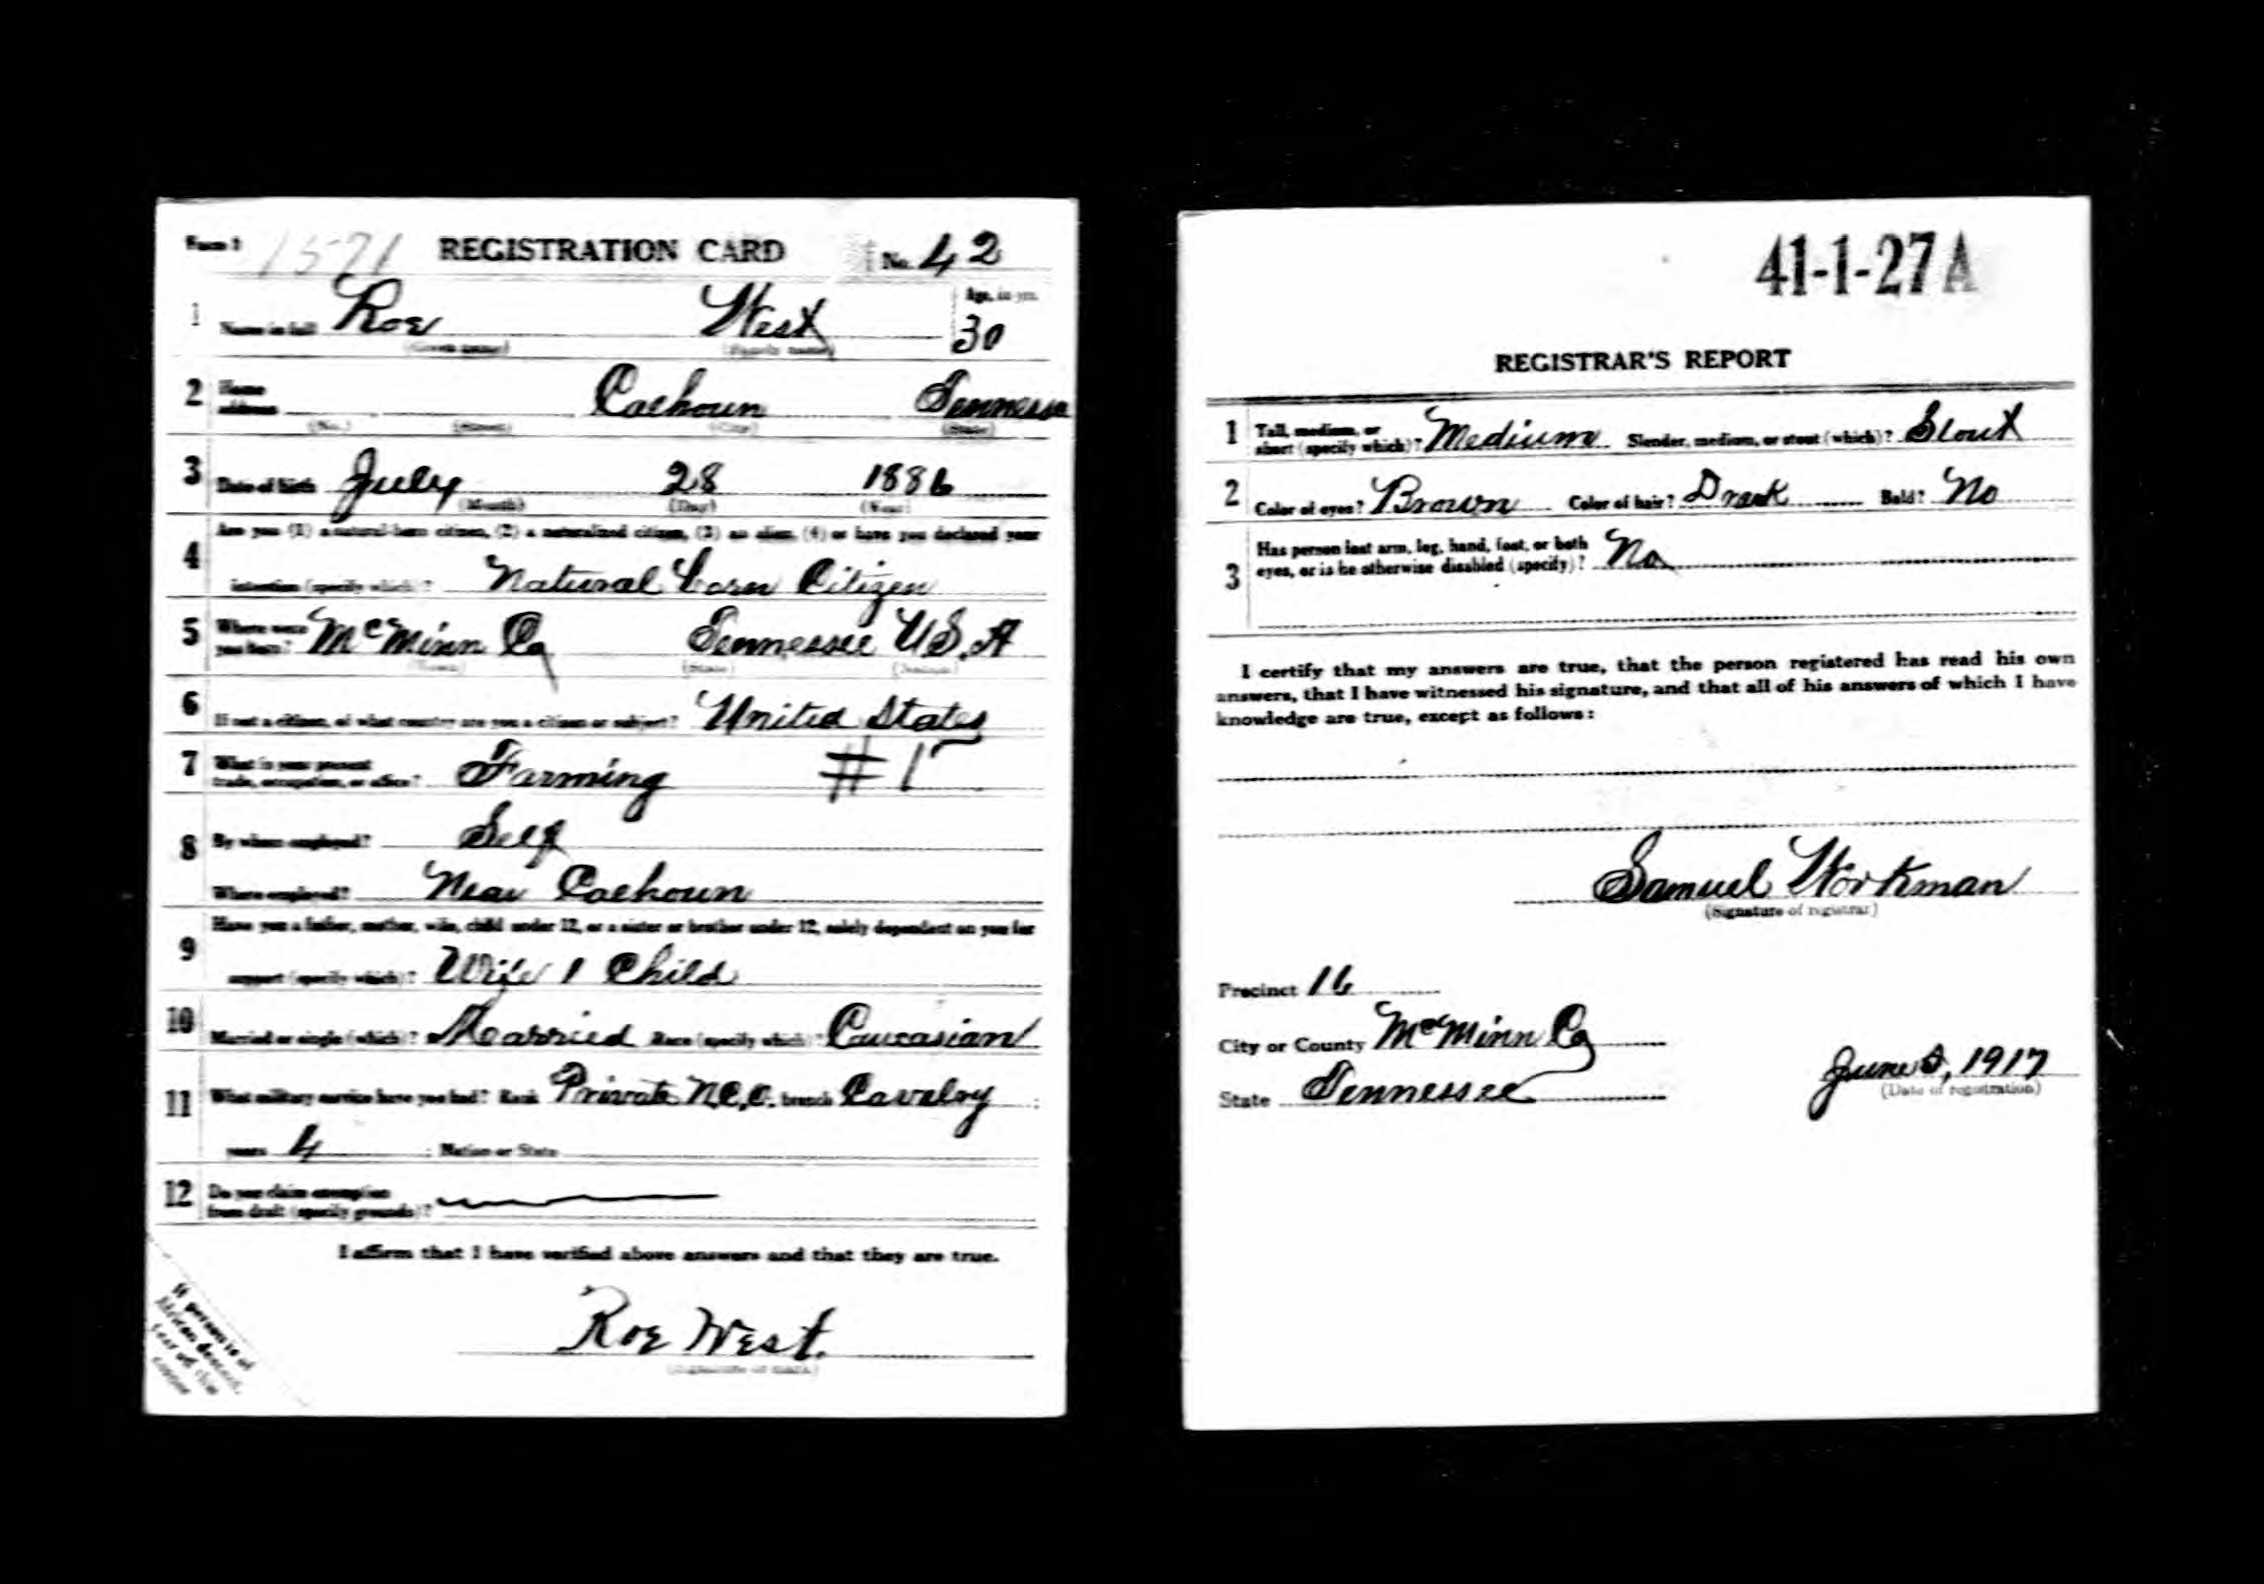 Form 1 1571 REGISTRATION CARD No. 42
1 Name in full Roe West Age, in yrs. 30
(Given name) (Family name)
2 Home address Calhoun Tennessee
(No.) (Street) (City) (State)
3 Date of birth July 28 1886
(Month) (Day) (Year)
4 Are you (1) a natural-born citizen, (2) a naturalized citizen, (3) an alien, (4) or have you declared your
intention (specify which)? Natural born Citizen
5 Where were you born? McMinn Co Tennessee U.S.A
(Town) (State) (Nation)
6 If not a citizen, of what country are you a citizen or subject? United States
7 What is your present
trade, occupation, or office? Farming # 1
8 By whom employed? Self
Where employed? Near Calhoun
9 Have you a father, mother, wife, child under 12, or a sister or brother under 12, solely dependent on you for
support (specify which)? Wife 1 Child
10 Married or single (which)? Married Race (specify which)? Caucasian
11 What military service have you had? Rank Private N.C.O. branch Cavalry ;
years 4 ; Nation or State
12 Do you claim exemption
from draft (specify grounds)?
I affirm that I have verified above answers and that they are true.
Roe West.
(Signature or mark)
If person is of
African descent,
tear off this
corner
41-1-27 A
REGISTRAR'S REPORT
1 Tall, medium, or
short (specify which)? Medium Slender, medium, or stout (which)? Stout
2 Color of eyes? Brown Color of hair? Drark Bald? No
3 Has person lost arm, leg, hand, foot, or both
eyes, or is he otherwise disabled (specify)? No
I certify that my answers are true, that the person registered has read his own
answers, that I have witnessed his signature, and that all of his answers of which I have
knowledge are true, except as follows:
Samuel Workman
(Signature of registrar)
Precinct 16
City or County McMinn Co
State Tennessee
June 5, 1917
(Date of registration)